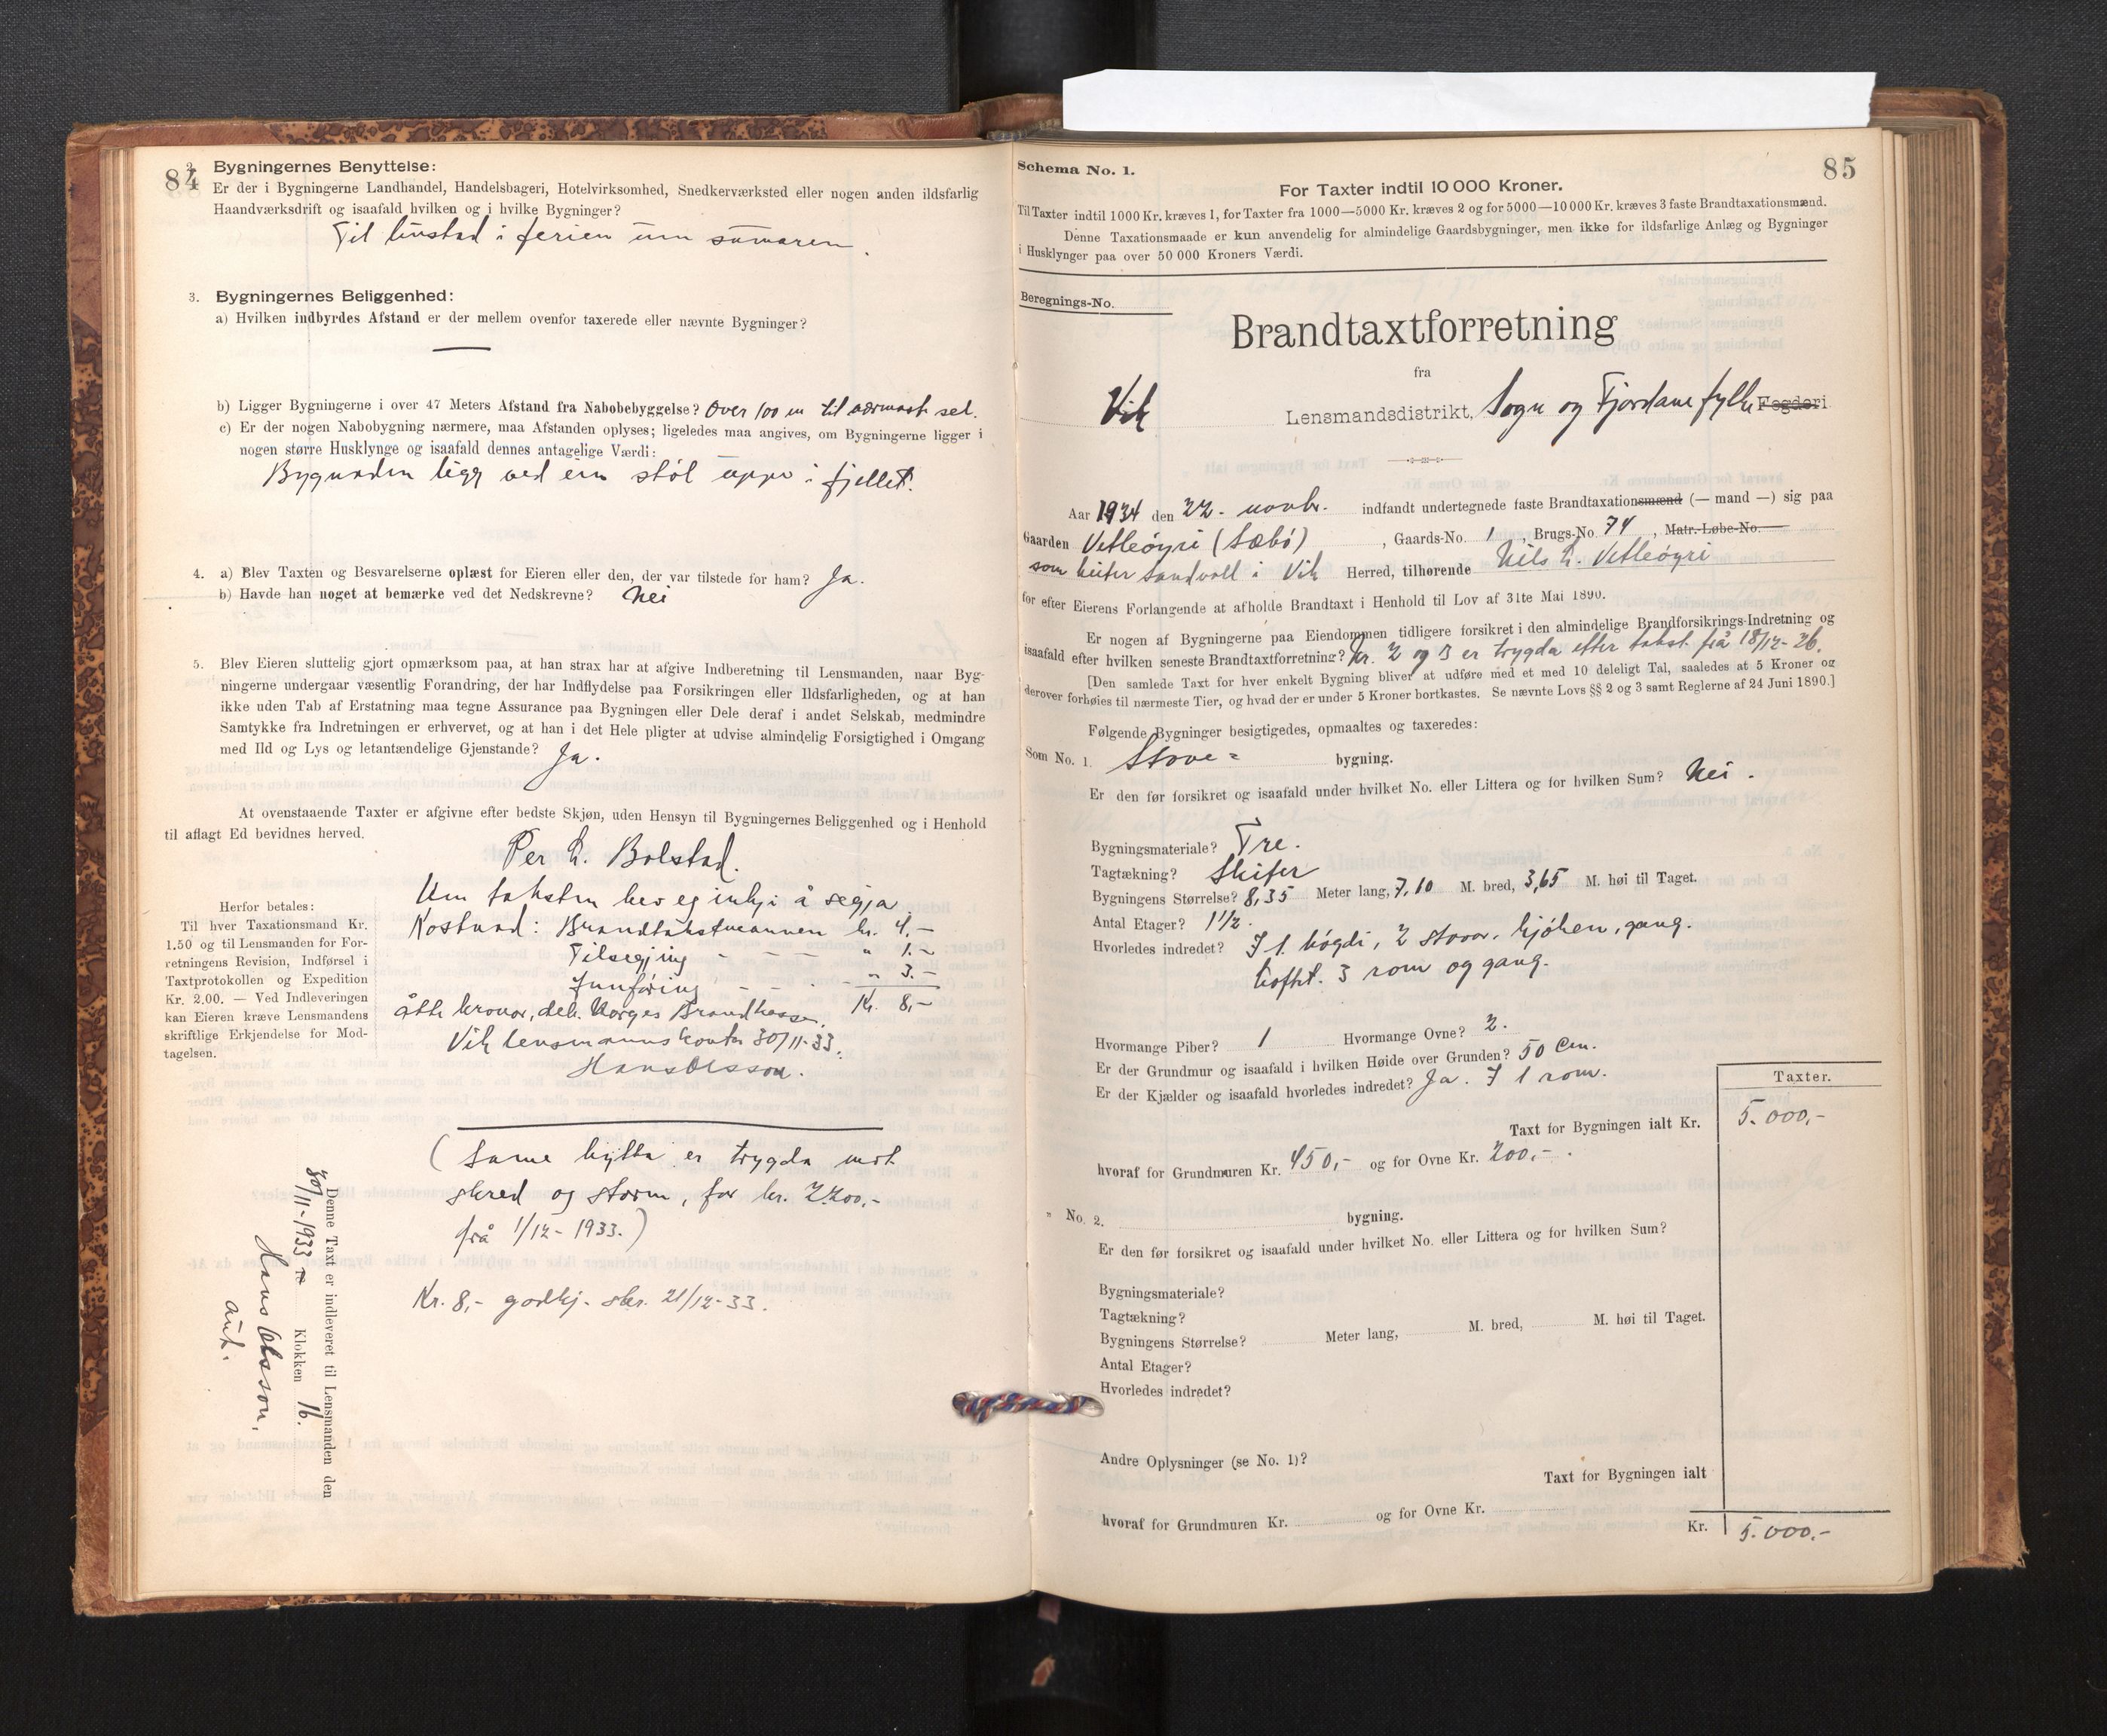 84
2. Bygningernes Benyttelse:
Er der i Bygningerne Landhandel, Handelsbageri, Hotelvirksomhed, Snedkerværksted eller nogen anden ildsfarlig
Haandværksdrift og isaafald hvilken og i hvilke Bygninger?
Til bustad i ferien um sumaren.
3. Bygningernes Beliggenhed:
a) Hvilken indbyrdes Afstand er der mellem ovenfor taxerede eller nævnte Bygninger?
—
b) Ligger Bygningerne i over 47 Meters Afstand fra Nabobebyggelse? Over 100 m til nærmaste sel.
c) Er der nogen Nabobygning nærmere, maa Afstanden oplyses; ligeledes maa angives, om Bygningerne ligger i
nogen større Husklynge og isaafald dennes antagelige Værdi:
Bygnaden ligg ved ein støl uppe i fjellet.
4. a) Blev Taxten og Besvarelserne oplæst for Eieren eller den, der var tilstede for ham? Ja.
b) Havde han noget at bemærke ved det Nedskrevne? Nei
5. Blev Eieren sluttelig gjort opmærksom paa, at han strax har at afgive Indberetning til Lensmanden, naar Byg-
ningerne undergaar væsentlig Forandring, der har Indflydelse paa Forsikringen eller Ildsfarligheden, og at han
ikke uden Tab af Erstatning maa tegne Assurance paa Bygningen eller Dele deraf i andet Selskab, medmindre
Samtykke fra Indretningen er erhvervet, og at han i det Hele pligter at udvise almindelig Forsigtighed i Omgang
med Ild og Lys og letantændelige Gjenstande? Ja.
At ovenstaaende Taxter er afgivne efter bedste Skjøn, uden Hensyn til Bygningernes Beliggenhed og i Henhold
til aflagt Ed bevidnes herved.
Per L. Bolstad.
Um taksten hev eg inkje å segja.
Kostnad: Brandtakstmannen kr. 4,-
Tilsegjing - - - " 1.-
Innføring - - - " 3.-
Kr. 8,-
åtte kronor, dek. Norges Brandkasse.
Vik lensmannskontor 30/11-33.
Hans Olsson.
Herfor betales:
Til hver Taxationsmand Kr.
1.50 og til Lensmanden for For-
retningens Revision, Indførsel i
Taxtprotokollen og Expedition
Kr. 2.00. — Ved Indleveringen
kan Eieren kræve Lensmandens
skriftlige Erkjendelse for Mod-
tagelsen.
(Same hytta er trygda mot
skred og storm, for kr. 2200,-
frå 1/12-1933.)
Kr. 8,- godkj. skr. 21/12-33.
Denne Taxt er indleveret til Lensmanden den
30/11-1933 Klokken 16.
Hans Olsson.
aut.
85
Schema No. 1.
For Taxter indtil 10 000 Kroner.
Til Taxter indtil 1000 Kr. kræves 1, for Taxter fra 1000—5000 Kr. kræves 2 og for 5000—10 000 Kr. kræves 3 faste Brandtaxationsmænd.
Denne Taxationsmaade er kun anvendelig for almindelige Gaardsbygninger, men ikke for ildsfarlige Anlæg og Bygninger
i Husklynger paa over 50 000 Kroners Værdi.
Beregnings-No.
Brandtaxtforretning
fra
Vik Lensmandsdistrikt, Sogn og Fjordane fylke Fogderi
Aar 1934 den 22. novbr. indfandt undertegnede faste Brandtaxationsmænd (— mand —) sig paa
Gaarden Vetleøyri (Sæbø), Gaards-No. 1, Brugs-No. 74, Matr.-Løbe-No.
som heiter Sandvoll i Vik Herred, tilhørende Nils L. Vetleøyri
for efter Eierens Forlangende at afholde Brandtaxt i Henhold til Lov af 31te Mai 1890.
Er nogen af Bygningerne paa Eiendommen tidligere forsikret i den almindelige Brandforsikrings-Indretning og
isaafald efter hvilken seneste Brandtaxtforretning? Nr. 2 og 3 er trygda etter takst frå 18/12-26.
[Den samlede Taxt for hver enkelt Bygning bliver at udføre med et med 10 deleligt Tal, saaledes at 5 Kroner og
derover forhøies til nærmeste Tier, og hvad der er under 5 Kroner bortkastes. Se nævnte Lovs §§ 2 og 3 samt Reglerne af 24 Juni 1890.]
Følgende Bygninger besigtigedes, opmaaltes og taxeredes:
Som No. 1. Stove= bygning.
Er den før forsikret og isaafald under hvilket No. eller Littera og for hvilken Sum? Nei.
Bygningsmateriale? Tre.
Tagtækning? Skifer
Bygningens Størrelse? 8,35 Meter lang, 7,10 M. bred, 3,65 M. høi til Taget.
Antal Etager? 1 1/2.
Hvorledes indredet? I 1. høgdi, 2 stovor, kjøken, gang.
Loftet. 3 rom og gang.
Hvormange Piber? 1 Hvormange Ovne? 2.
Er der Grundmur og isaafald i hvilken Høide over Grunden? 50 cm.
Er der Kjælder og isaafald hvorledes indredet? Ja. I 1 rom.
Taxter.
Taxt for Bygningen ialt Kr. 5.000,-
hvoraf for Grundmuren Kr. 450,- og for Ovne Kr. 200,-.
" No. 2. bygning.
Er den før forsikret og isaafald under hvilket No. eller Littera og for hvilken Sum?
Bygningsmateriale?
Tagtækning?
Bygningens Størrelse? Meter lang, M. bred, M. høi til Taget.
Antal Etager?
Hvorledes indredet?
Andre Oplysninger (se No. 1)?
Taxt for Bygningen ialt
hvoraf for Grundmuren Kr. og for Ovne Kr.
Kr. 5.000,-